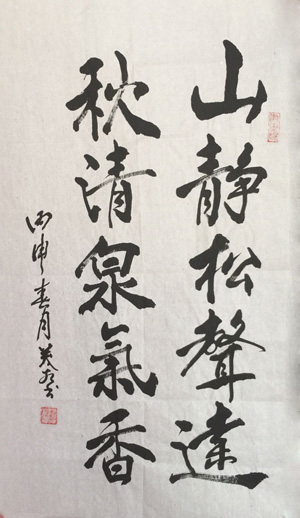 山静松聲遠
秋清泉氣香
丙申春月